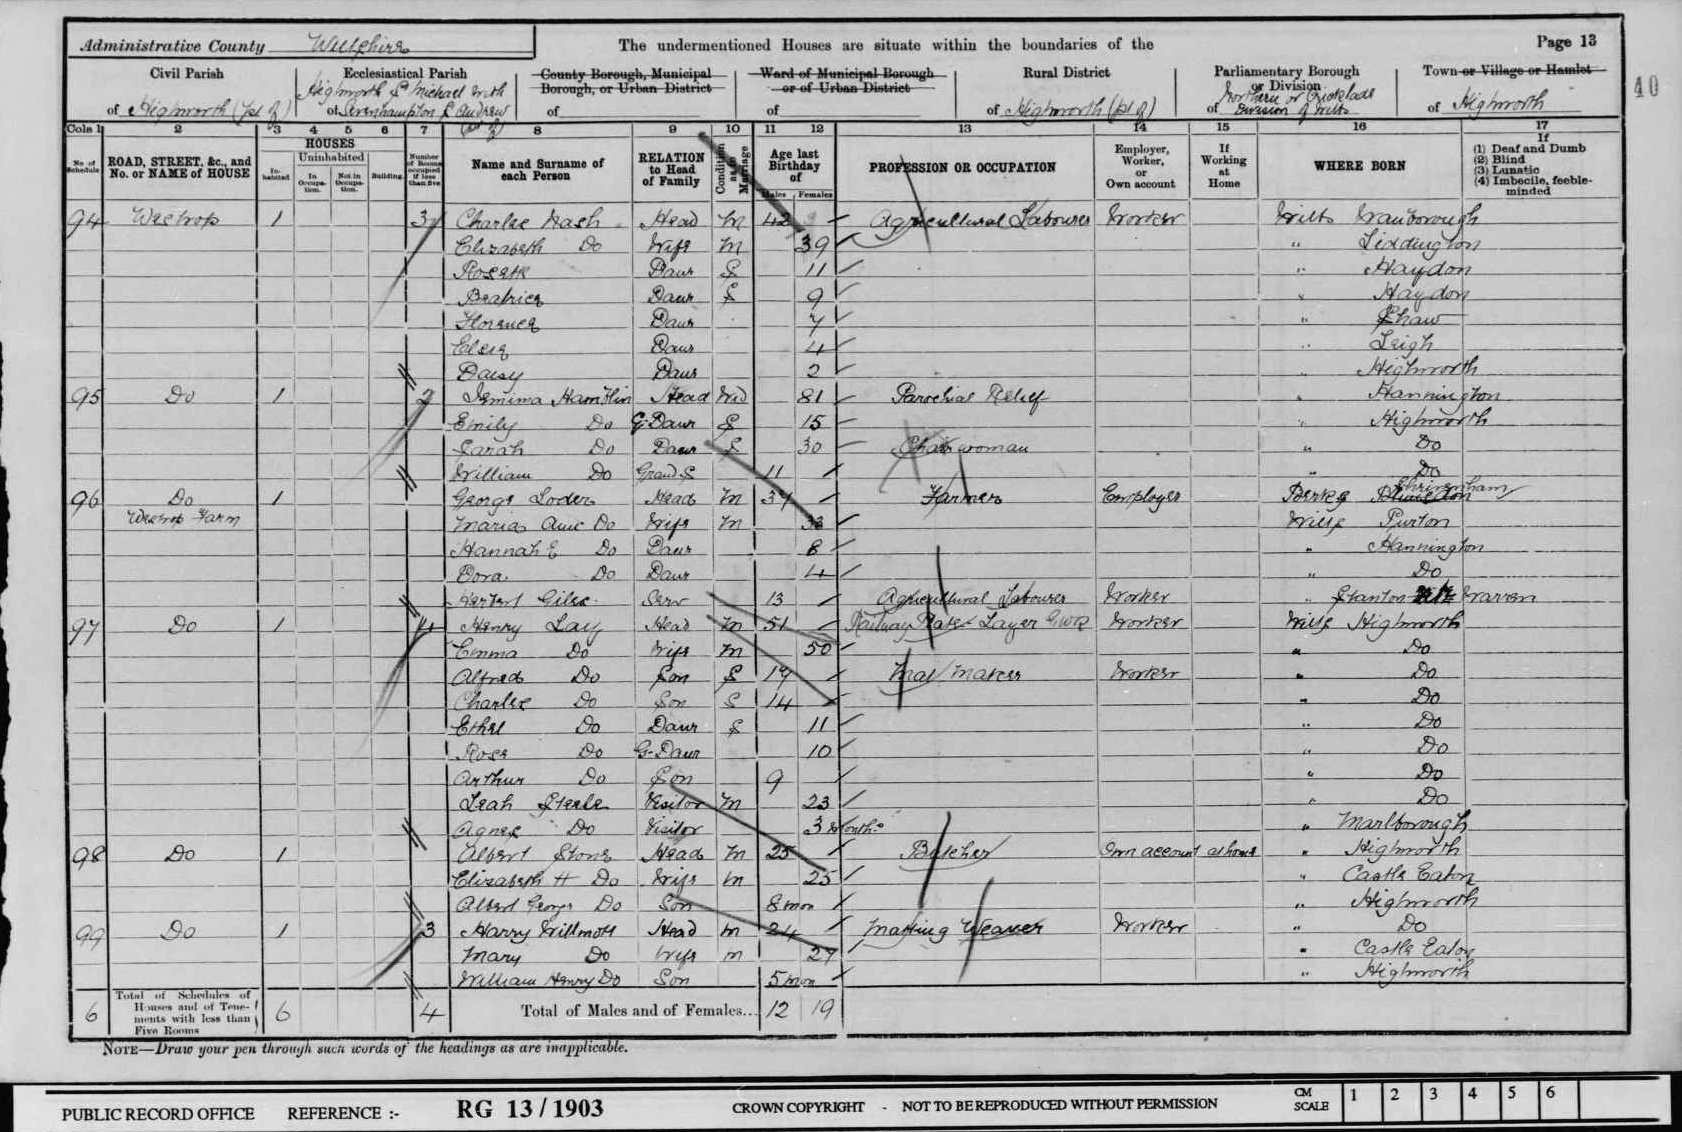 Administrative County Wiltshire
The undermentioned Houses are situate within the boundaries of the
Page 13
40
Civil Parish
of Highworth (pt of)
Ecclesiastical Parish
Highworth St Michael with
of Sevenhampton St Andrew
(pt of)
County Borough, Municipal
Borough, or Urban District
of
Ward of Municipal Borough
or of Urban District
of
Rural District
of Highworth (pt of)
Parliamentary Borough
or Division
Northern or Cricklade
of Division of Wilts
Town or Village or Hamlet
of Highworth
Cols 1 2 3 4 5 6 7 8 9 10 11 12 13 14 15 16 17
No. of Schedule
ROAD, STREET, &c., and
No. or NAME of HOUSE
HOUSES
In-habited
Uninhabited
In Occupa-tion.
Not in Occupa-tion.
Building.
Number of Rooms occupied if less than five
Name and Surname of
each Person
RELATION
to Head
of Family
Condition as to Marriage
Age last
Birthday
of
Males Females
PROFESSION OR OCCUPATION
Employer,
Worker,
or
Own account
If
Working
at
Home
WHERE BORN
If
(1) Deaf and Dumb
(2) Blind
(3) Lunatic
(4) Imbecile, feeble-
minded
94 Westrop 1 3 Charles Nash Head M 42 Agricultural Labourer Worker Wilts Wanborough
Elizabeth Do Wife M 39 " Liddington
Rosette Daur S 11 " Haydon
Beatrice Daur S 9 " Haydon
Florence Daur 7 " Shaw
Elsie Daur 4 " Leigh
Daisy Daur 2 " Highworth
95 Do 1 2 Jemima Hamblin Head Wid 81 Parochial Relief " Hannington
Emily Do G-Daur S 15 " Highworth
Sarah Do Daur S 30 Charwoman " Do
William Do Grand S 11 " Do
96 Do 1 George Loder Head M 37 Farmer Employer Berks Shrivenham
Westrop Farm Maria Do Wife M 33 Wilts Purton
Hannah E Do Daur 8 " Hannington
Dora Do Daur 4 " Do
Herbert Giles Serv 13 Agricultural Labourer Worker " Stanton
97 Do 1 4 Henry Lay Head M 51 Railway Plate Layer GWR Worker Wilts Highworth
Emma Do Wife M 50 " Do
Alfred Do Son S 17 Mat Maker Worker " Do
Charles Do Son S 14 " Do
Ethel Do Daur S 11 " Do
Rose Do G-Daur 10 " Do
Arthur Do Son 9 " Do
Leah Steele Visitor M 23 " Do
Agnes Do Visitor 3 months " Marlborough
98 Do 1 Albert Stone Head M 25 Butcher Own account at home " Highworth
Elizabeth H Do Wife M 25 " Castle Eaton
Albert George Do Son 8 mon " Highworth
99 Do 1 3 Harry Willmott Head M 24 Matting Weaver Worker " Do
Mary Do Wife M 27 " Castle Eaton
William Henry Do Son 5 mon " Highworth
6 Total of Schedules of
Houses and of Tene-
ments with less than
Five Rooms
6 4 Total of Males and of Females... 12 19
NOTE—Draw your pen through such words of the headings as are inapplicable.
PUBLIC RECORD OFFICE REFERENCE :- RG 13/1903 CROWN COPYRIGHT - NOT TO BE REPRODUCED WITHOUT PERMISSION CM SCALE 1 2 3 4 5 6